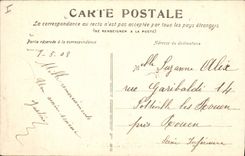 CARTE POSTALE
La correspondance au recto n'est pas acceptée par tous les pays étrangers
(SE RENSEIGNER A LA POSTE)
Partie réservée à la correspondance
Adresse du destinataire
7-5-08
Mille remerciements
Melle Suzanne Alix
rue Garibaldi 14
Sotteville les Rouen
près Rouen
Seine Inférieure